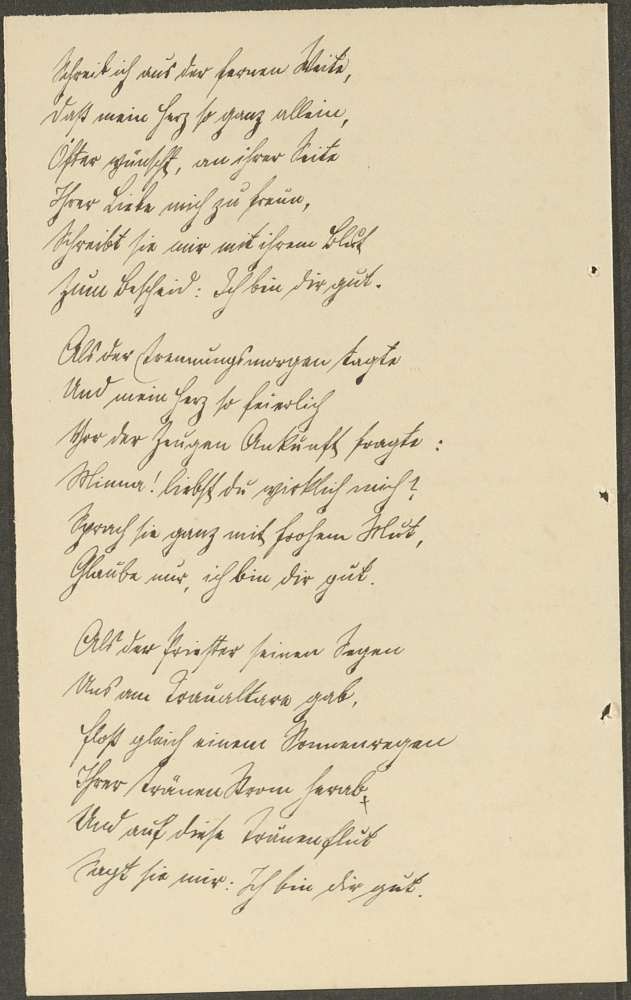 Schreib ich aus der fernen Weite,
Daß mein Herz so ganz allein,
Öfter wünscht, an ihrer Seite
Ihrer Liebe mich zu freun,
Schreibt sie mir mit ihrem Blut
Zum Bescheid: Ich bin dir gut.
Als der Trennungsmorgen tagte
Und mein Herz so feierlich
Vor der Zeugen Ankunft fragte:
Minna! liebst du wirklich mich?
Sprach sie ganz mit frohem Mut,
Glaube nur, ich bin dir gut.
Als der Priester seinen Segen
Uns am Traualtare gab,
Floß gleich einem Sonnenregen
Ihrer Tränen Strom herab
Und auf diese Tränenflut
Sagt sie mir: Ich bin dir gut.